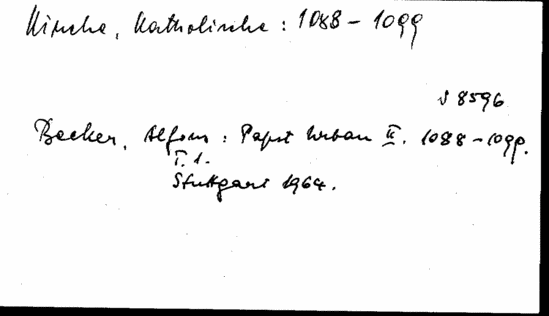 Kirche, Katholische: 1088 - 1099
V 8596
Becker, Alfons: Papst Urban II. 1088-1099.
T. 1.
Stuttgart 1964.